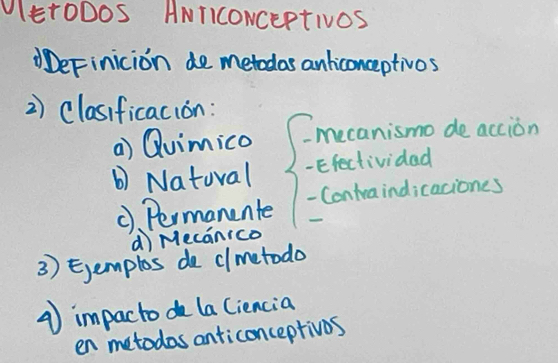 METODOS ANTICONCEPTIVOS
1) Definición de metodos anticonceptivos
2) Clasificación:
a) Químico
b) Natural
c) Permanente
d) Mecánico
- mecanismo de acción
- Efectividad
- Contraindicaciones
-
3) Ejemplos de c/metodo
4) impacto de la Ciencia
en metodos anticonceptivos